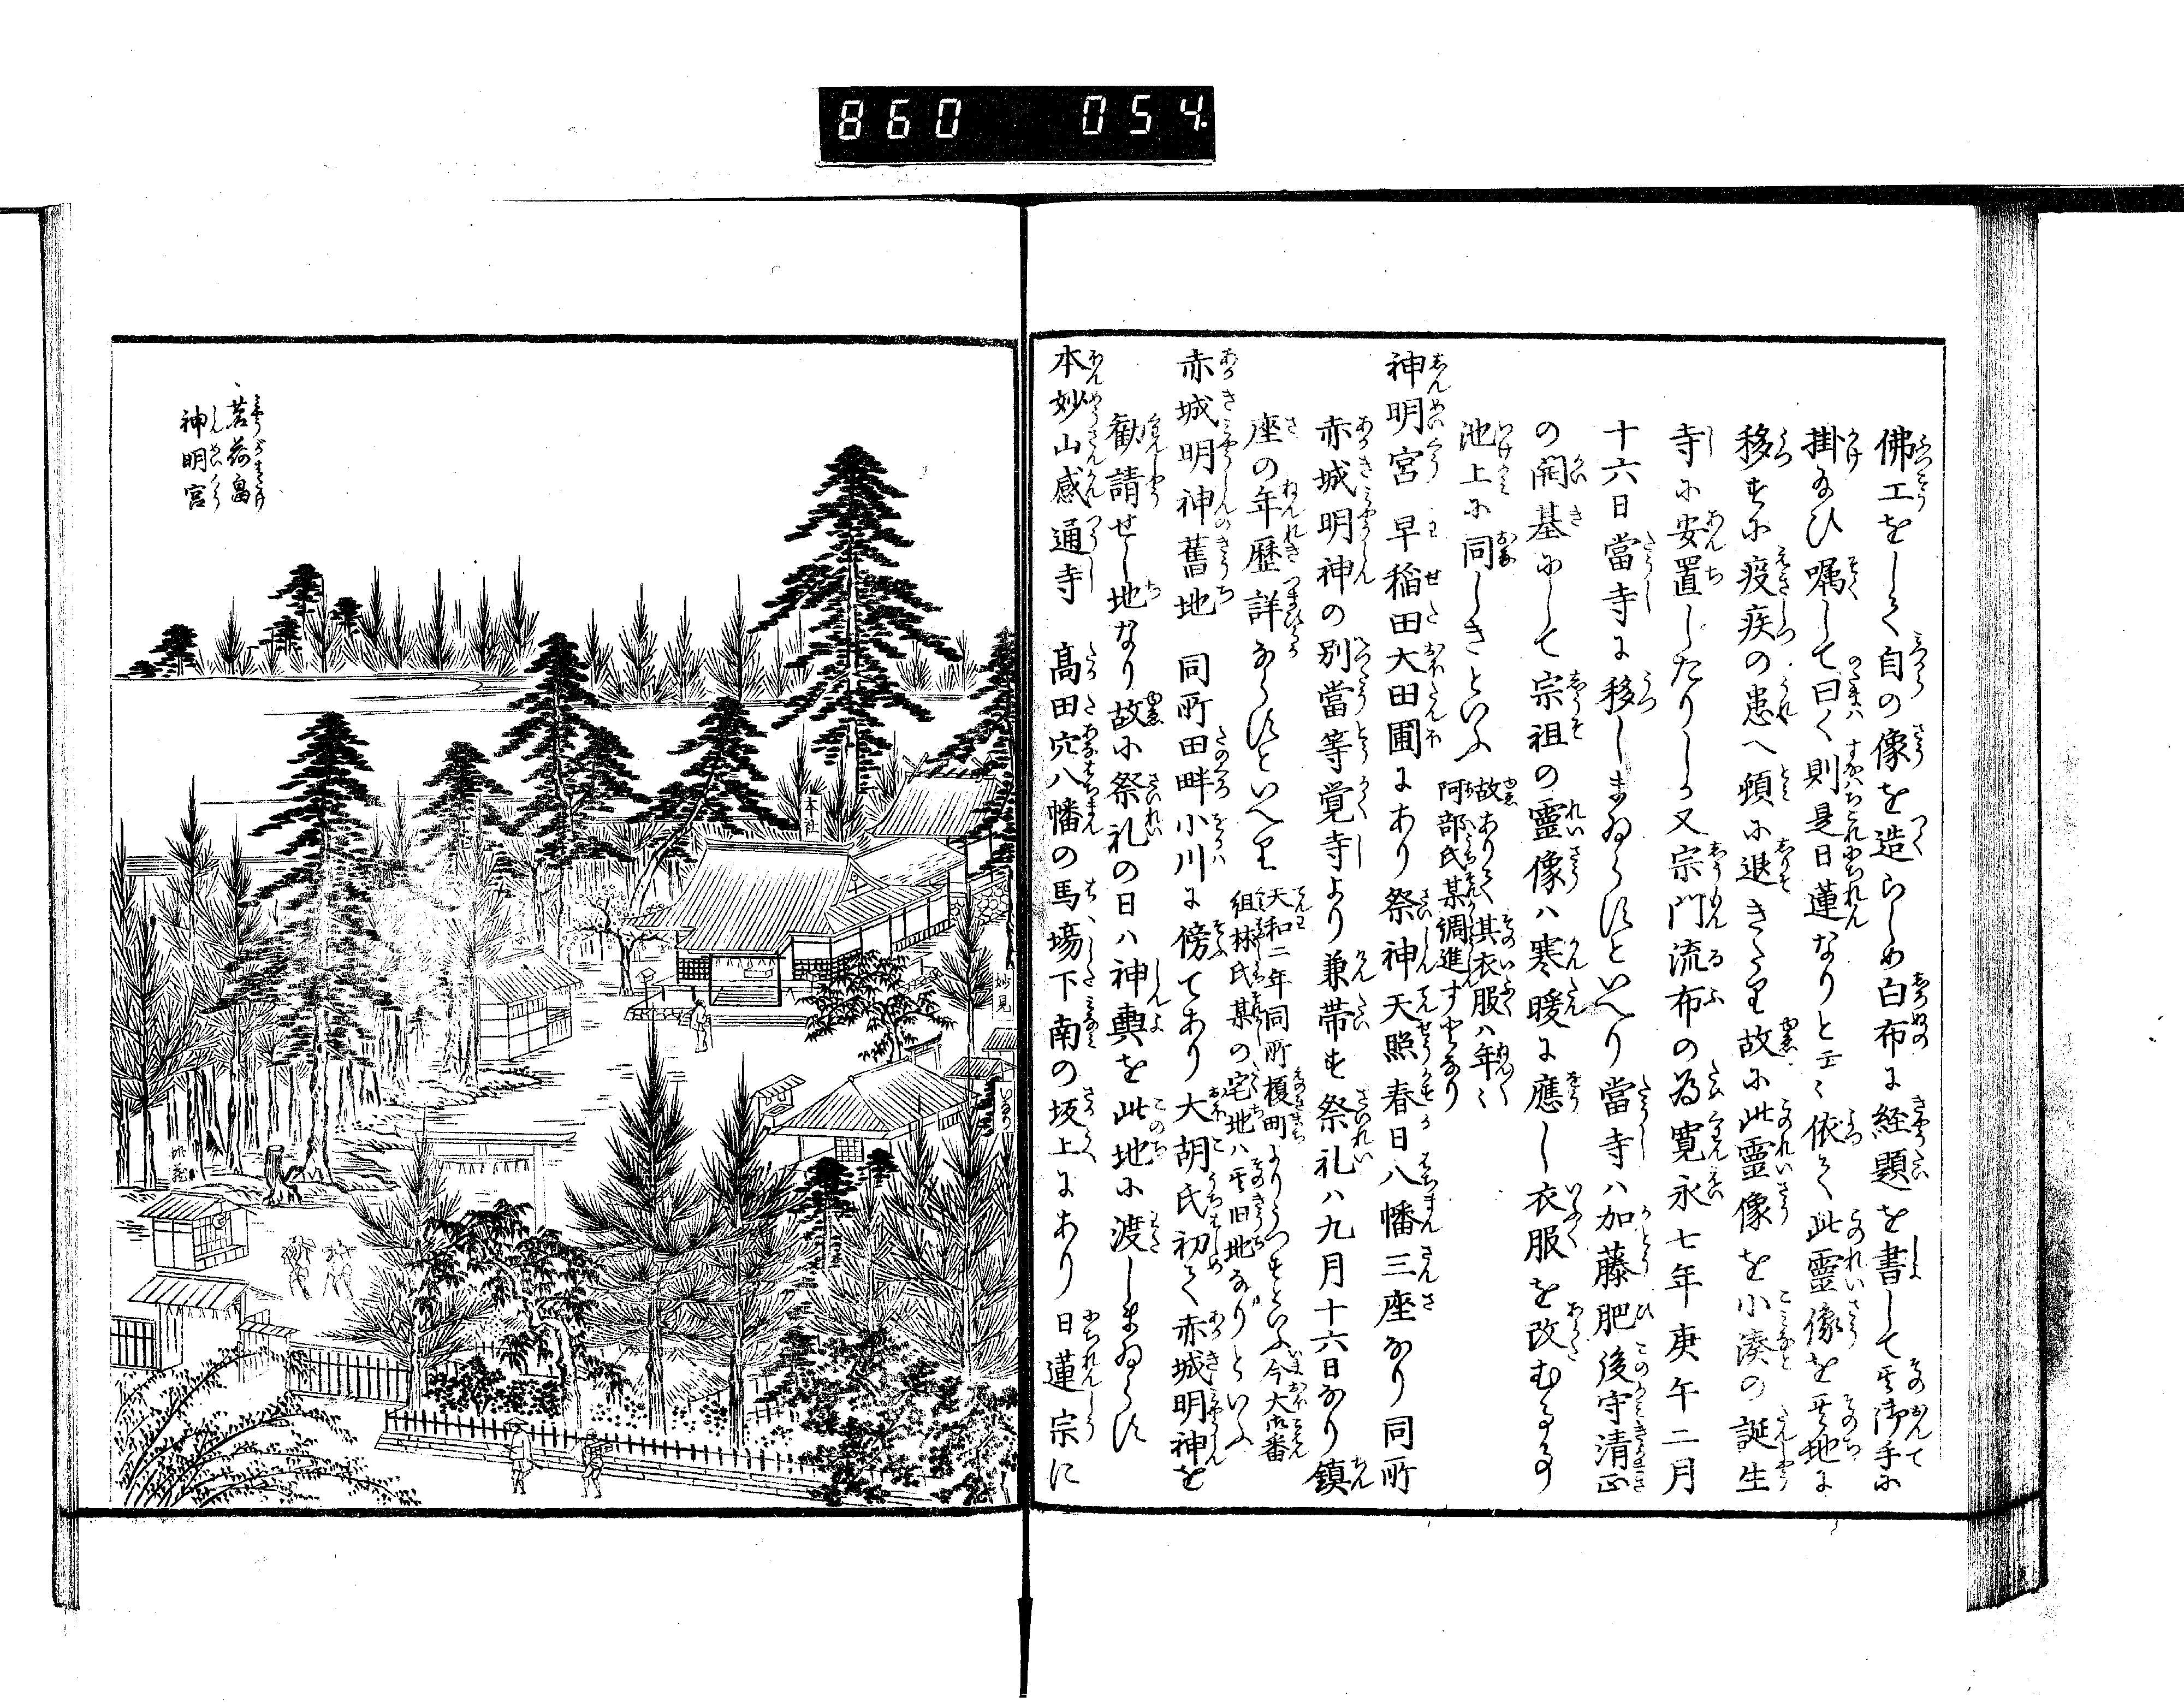 860 054
佛工をして自の像を造らしめ白布に経題を書して其御手に
掛給ひ嘱して曰く則是日蓮なりと云々依て此霊像を其地に
移すに疫疾の患へ頓に退きたり故に此霊像を小湊の誕生
寺に安置したりしか又宗門流布の為寛永七年庚午二月
十六日當寺に移しまゐらすといへり當寺ハ加藤肥後守清正
の開基にして宗祖の霊像ハ寒暖に應し衣服を改むる事
池上に同しきといふ
故ありて其衣服ハ年々
阿部氏某調進すとなり
神明宮 早稲田大田圃にあり祭神天照春日八幡三座なり同所
赤城明神の別當等覚寺より兼帯す祭礼ハ九月十六日なり鎮
座の年歴詳ならすといへり
天和二年同所榎町よりうつすといふ今大御番
組林氏某の宅地ハ其旧地なりといふ
赤城明神舊地 同所田畔小川に傍てあり大胡氏初て赤城明神を
勧請せし地なり故に祭礼の日ハ神輿を此地に渡しまゐらす
本妙山感通寺 髙田穴八幡の馬塲下南の坂上にあり日蓮宗に
茗荷畠
神明宮
本社
妙見
いなり